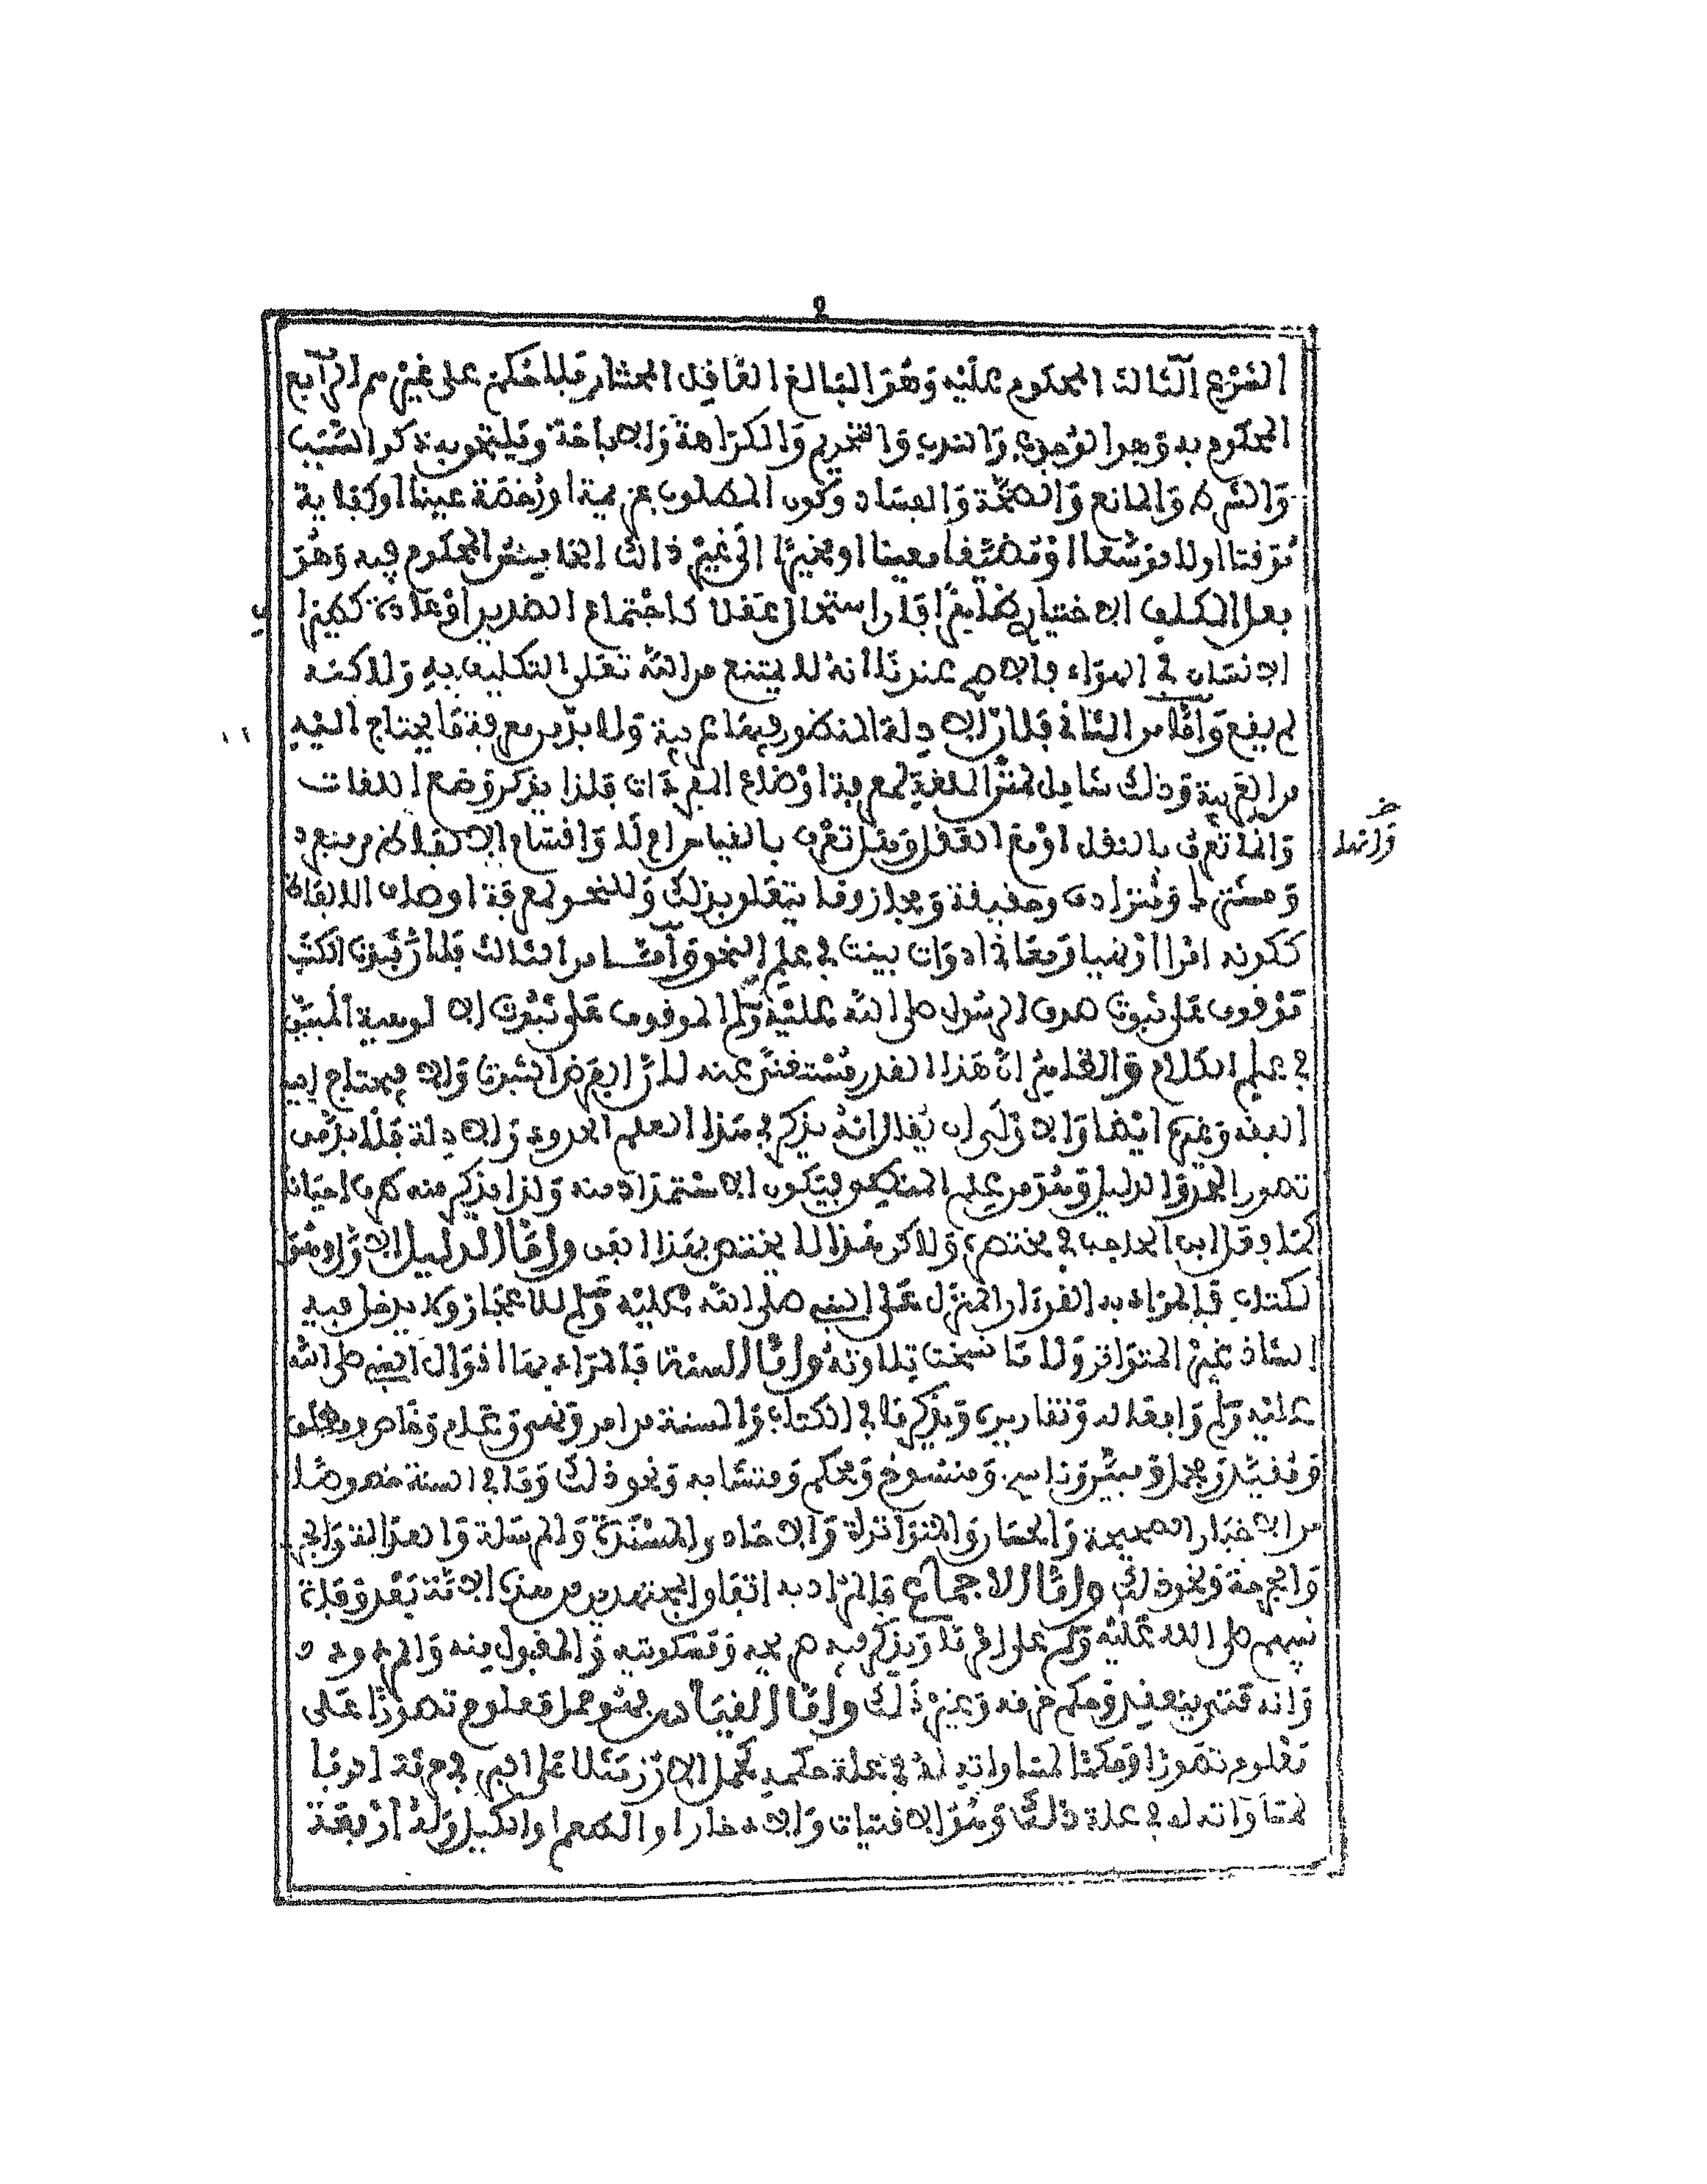 الفرع الثالث المحكوم عليه وهو البالغ العاقل المختار فلا حكم على غيرهم الرابع
المحكوم به وهو الوجوب والندب والتحريم والكراهة والاباحة ويلتحق به ذكر السبب
والشرط والمانع والصحة والفساد وكون المطلوب عزيمة او رخصة عينا او كفاية
موقتا او لا موسعا او مضيقا معينا او مخيرا الى غير ذلك الخامس المحكوم فيه وهو
فعل المكلف الاختياري فان استحال عقلا كاجتماع الضدين او عادة كطيران
الانسان في الهواء فالاصح عندنا انه لا يمتنع من الله تعلى التكليف به ولاكنه
لم يقع واما من الثاني فلان الادلة المنظور فيها عربية ولا بد من معرفة ما يحتاج اليه
من العربية وذلك شامل لمتن اللغة لمعرفة اوضاع المفردات فلذا يذكر وضع اللغات
وانها تعرف بالنقل او مع العقل وهل تعرف بالقياس ام لا واقسام الالفاظ من منفرد
ومشترط ومترادف وحقيقة ومجاز وما يتعلق بذلك وللنحو لمعرفة اوصاف الالفاظ
ككونه امرا او نهيا ومعاني ادوات بينت في علم النحو واما من الثالث فلان ثبوت الكتب
موقوف على ثبوت صدق الرسول صلى الله عليه وسلم الموقوف على ثبوت الالوهية المبين
في علم الكلام والظاهر ان هذا القدر مستغنى عنه لان الغرض الثبوت والا فيحتاج اليه
الفقه وغيره ايضا والاولى ان يقال انه يذكر في هذا العلم الحدود والادلة فلا بد من
تصور الحد والدليل وهو من علم المنطق فيكون الاستمداد منه ولذا يذكر منه طرف احيانا
كما وقع لابن الحاجب في مختصره ولاكن هذا لا يختص بهذا الفن واما الدليل الاول وهو
لكتاب فالمراد به القرءان المنزل على النبي صلى الله عليه وسلم للاعجاز ولا يدخل فيه
الشاذ غير المتواتر ولا ما نسخت تلاوته واما السنة فالمراد بها اقوال النبي صلى الله
عليه وسلم وافعاله وتقاريره ويذكر ما في الكتاب والسنة من امر ونهي وعام وخاص ومطلق
ومقيد ومجمل ومبين وناسخ ومنسوخ ومحكم ومتشابه ونحو ذلك وما في السنة خصوصا
من الاخبار الصحيحة والحسان والمتواترة والاحاد والمسندة والمرسلة والعدالة والجر
والجرحة ونحو ذلك واما الاجماع فالمراد به اتفاق المجتهدين من هذه الامة بعد وفاة
نبيهم صلى الله عليه وسلم على امر ما ويذكر فيه صريحه وسكوتيه والمقبول منه والمردود
وانه متى ينعقد وحكم خرقه وغير ذلك واما القياس فهو حمل معلوم تصورا على
معلوم تصورا وحكما لمساواته له في علة حكمه كحمل الارز مثلا على البر في حرمة الربا
لمساواته له في علة ذلك وهو الاقتيات والادخار او الطعم او الكيل وله اربعة
وانها